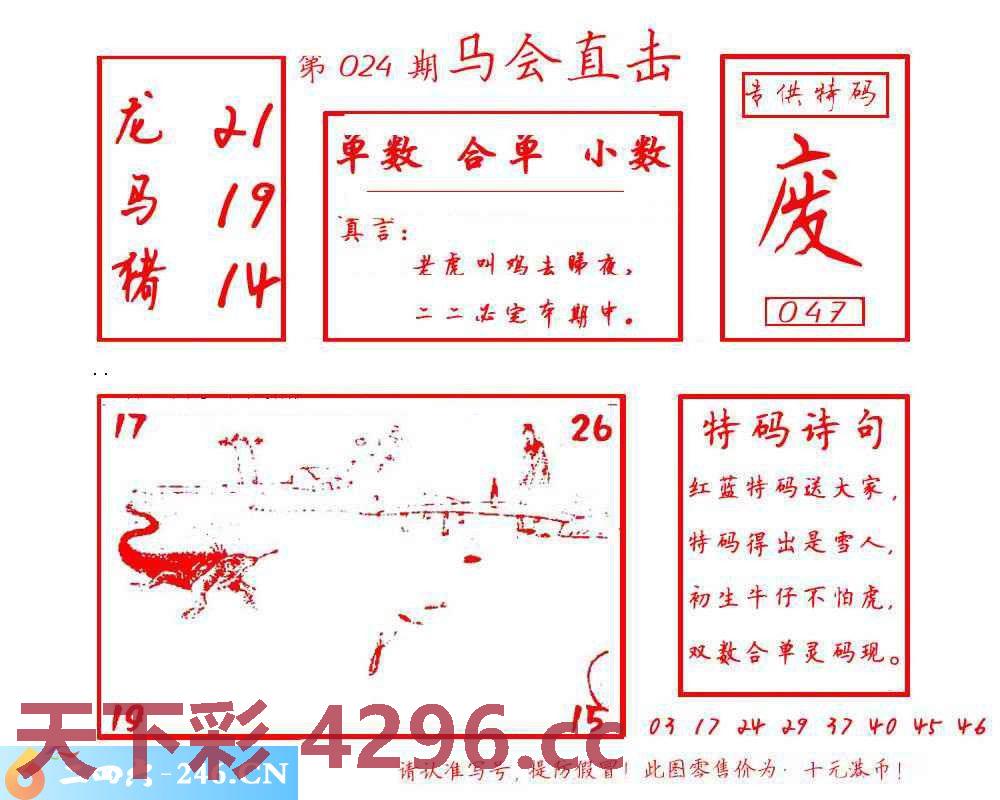 第 024 期 马会直击
龙 21
马 19
猪 14
单数 合单 小数
真言:
老虎叫鸡去睇夜,
二二必定本期中。
专供特码
废
047
17 26
19 15
特码诗句
红蓝特码送大家,
特码得出是雪人,
初生牛仔不怕虎,
双数合单灵码现。
03 17 24 29 37 40 45 46
天下彩 4296.cc
-246.CN
请认准写号,提防假冒!此图零售价为:十元港币!